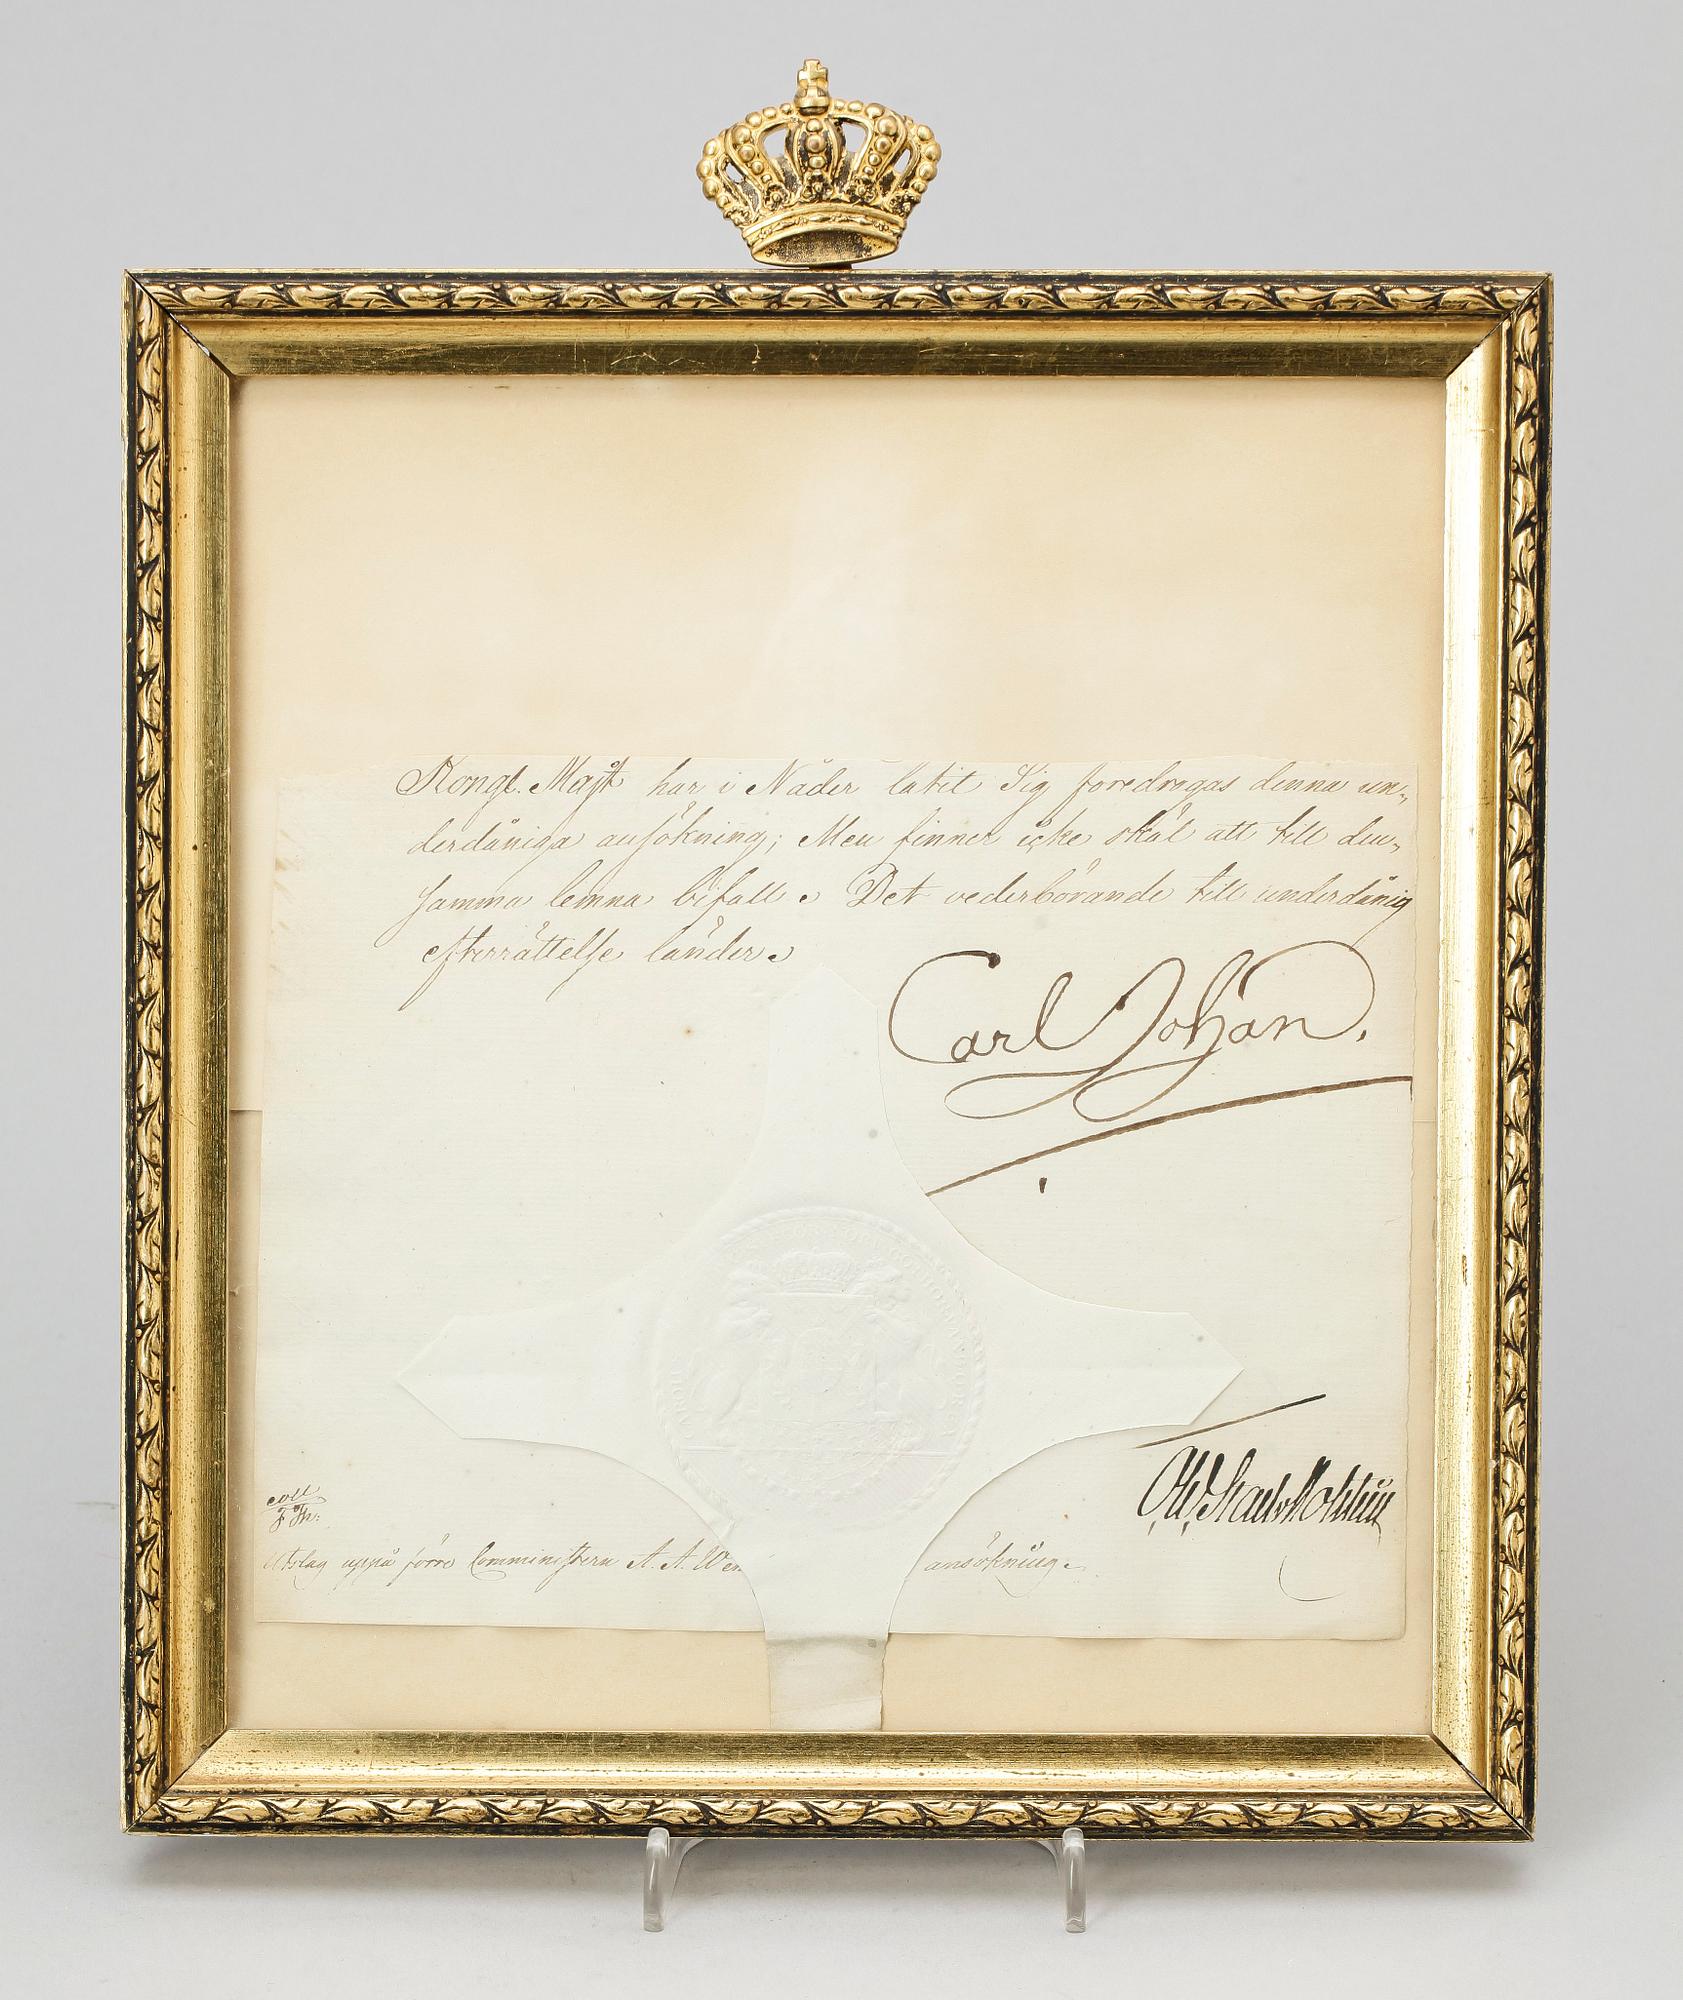 Kongl. Majt har i Nåder låtit Sig föredragas denna un-
derdåniga ansökning; Men finner icke skäl att till den-
samma lemna bifall. Det vederbörande till underdånig
efterrättelse länder.
Carl Johan.
coll
Utslag uppå förre Comministern A. A. Wen ansökning.